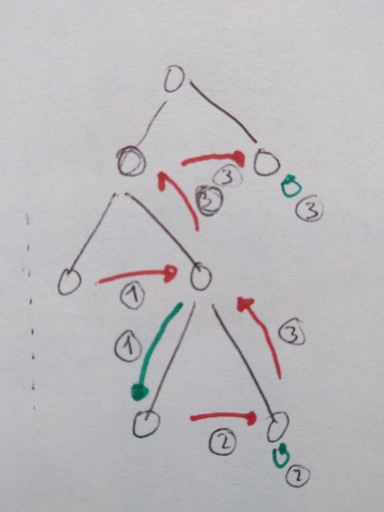 ③
③
③
①
①
③
②
②